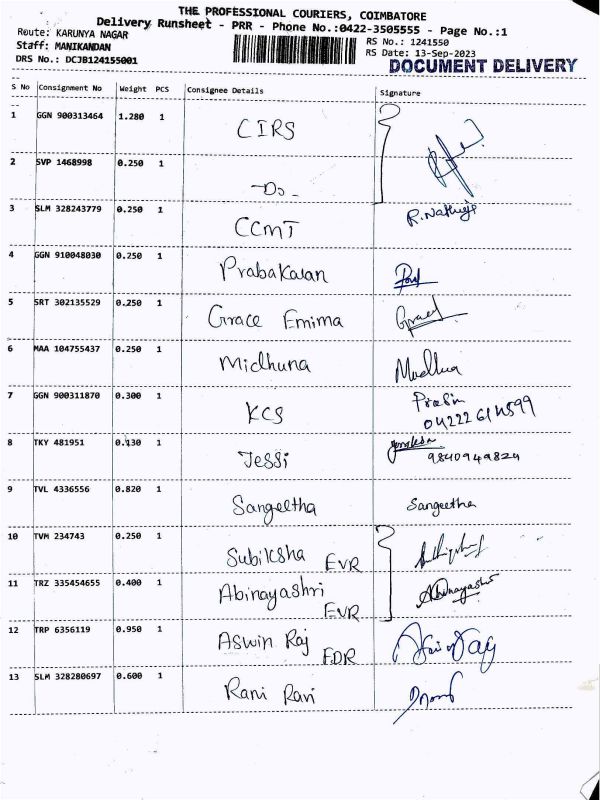 THE PROFESSIONAL COURIERS, COIMBATORE
Delivery Runsheet - PRR - Phone No.:0422-3505555 - Page No.:1
Route: KARUNYA NAGAR
RS No.: 1241550
Staff: MANIKANDAN
RS Date: 13-Sep-2023
DRS No.: DCJB124155001
DOCUMENT DELIVERY
S No Consignment No Weight PCS Consignee Details Signature
1 GGN 900313464 1.280 1 CIRS
2 SVP 1468998 0.250 1 -Do-
3 SLM 328243779 0.250 1 CCMT R.Nathiya
4 GGN 910048030 0.250 1 Prabakaran
5 SRT 302135529 0.250 1 Grace Emima Grace
6 MAA 104755437 0.250 1 Midhuna Midhuna
7 GGN 900311870 0.300 1 KCS
04222614599
8 TKY 481951 0.130 1 Jessi
9840949824
9 TVL 4336556 0.820 1 Sangeetha Sangeetha
10 TVM 234743 0.250 1 Subiksha EVR
11 TRZ 335454655 0.400 1 Abinayashri EVR Abinayashri
12 TRP 6356119 0.950 1 Aswin Raj FDR
13 SLM 328280697 0.600 1 Rani Ravi